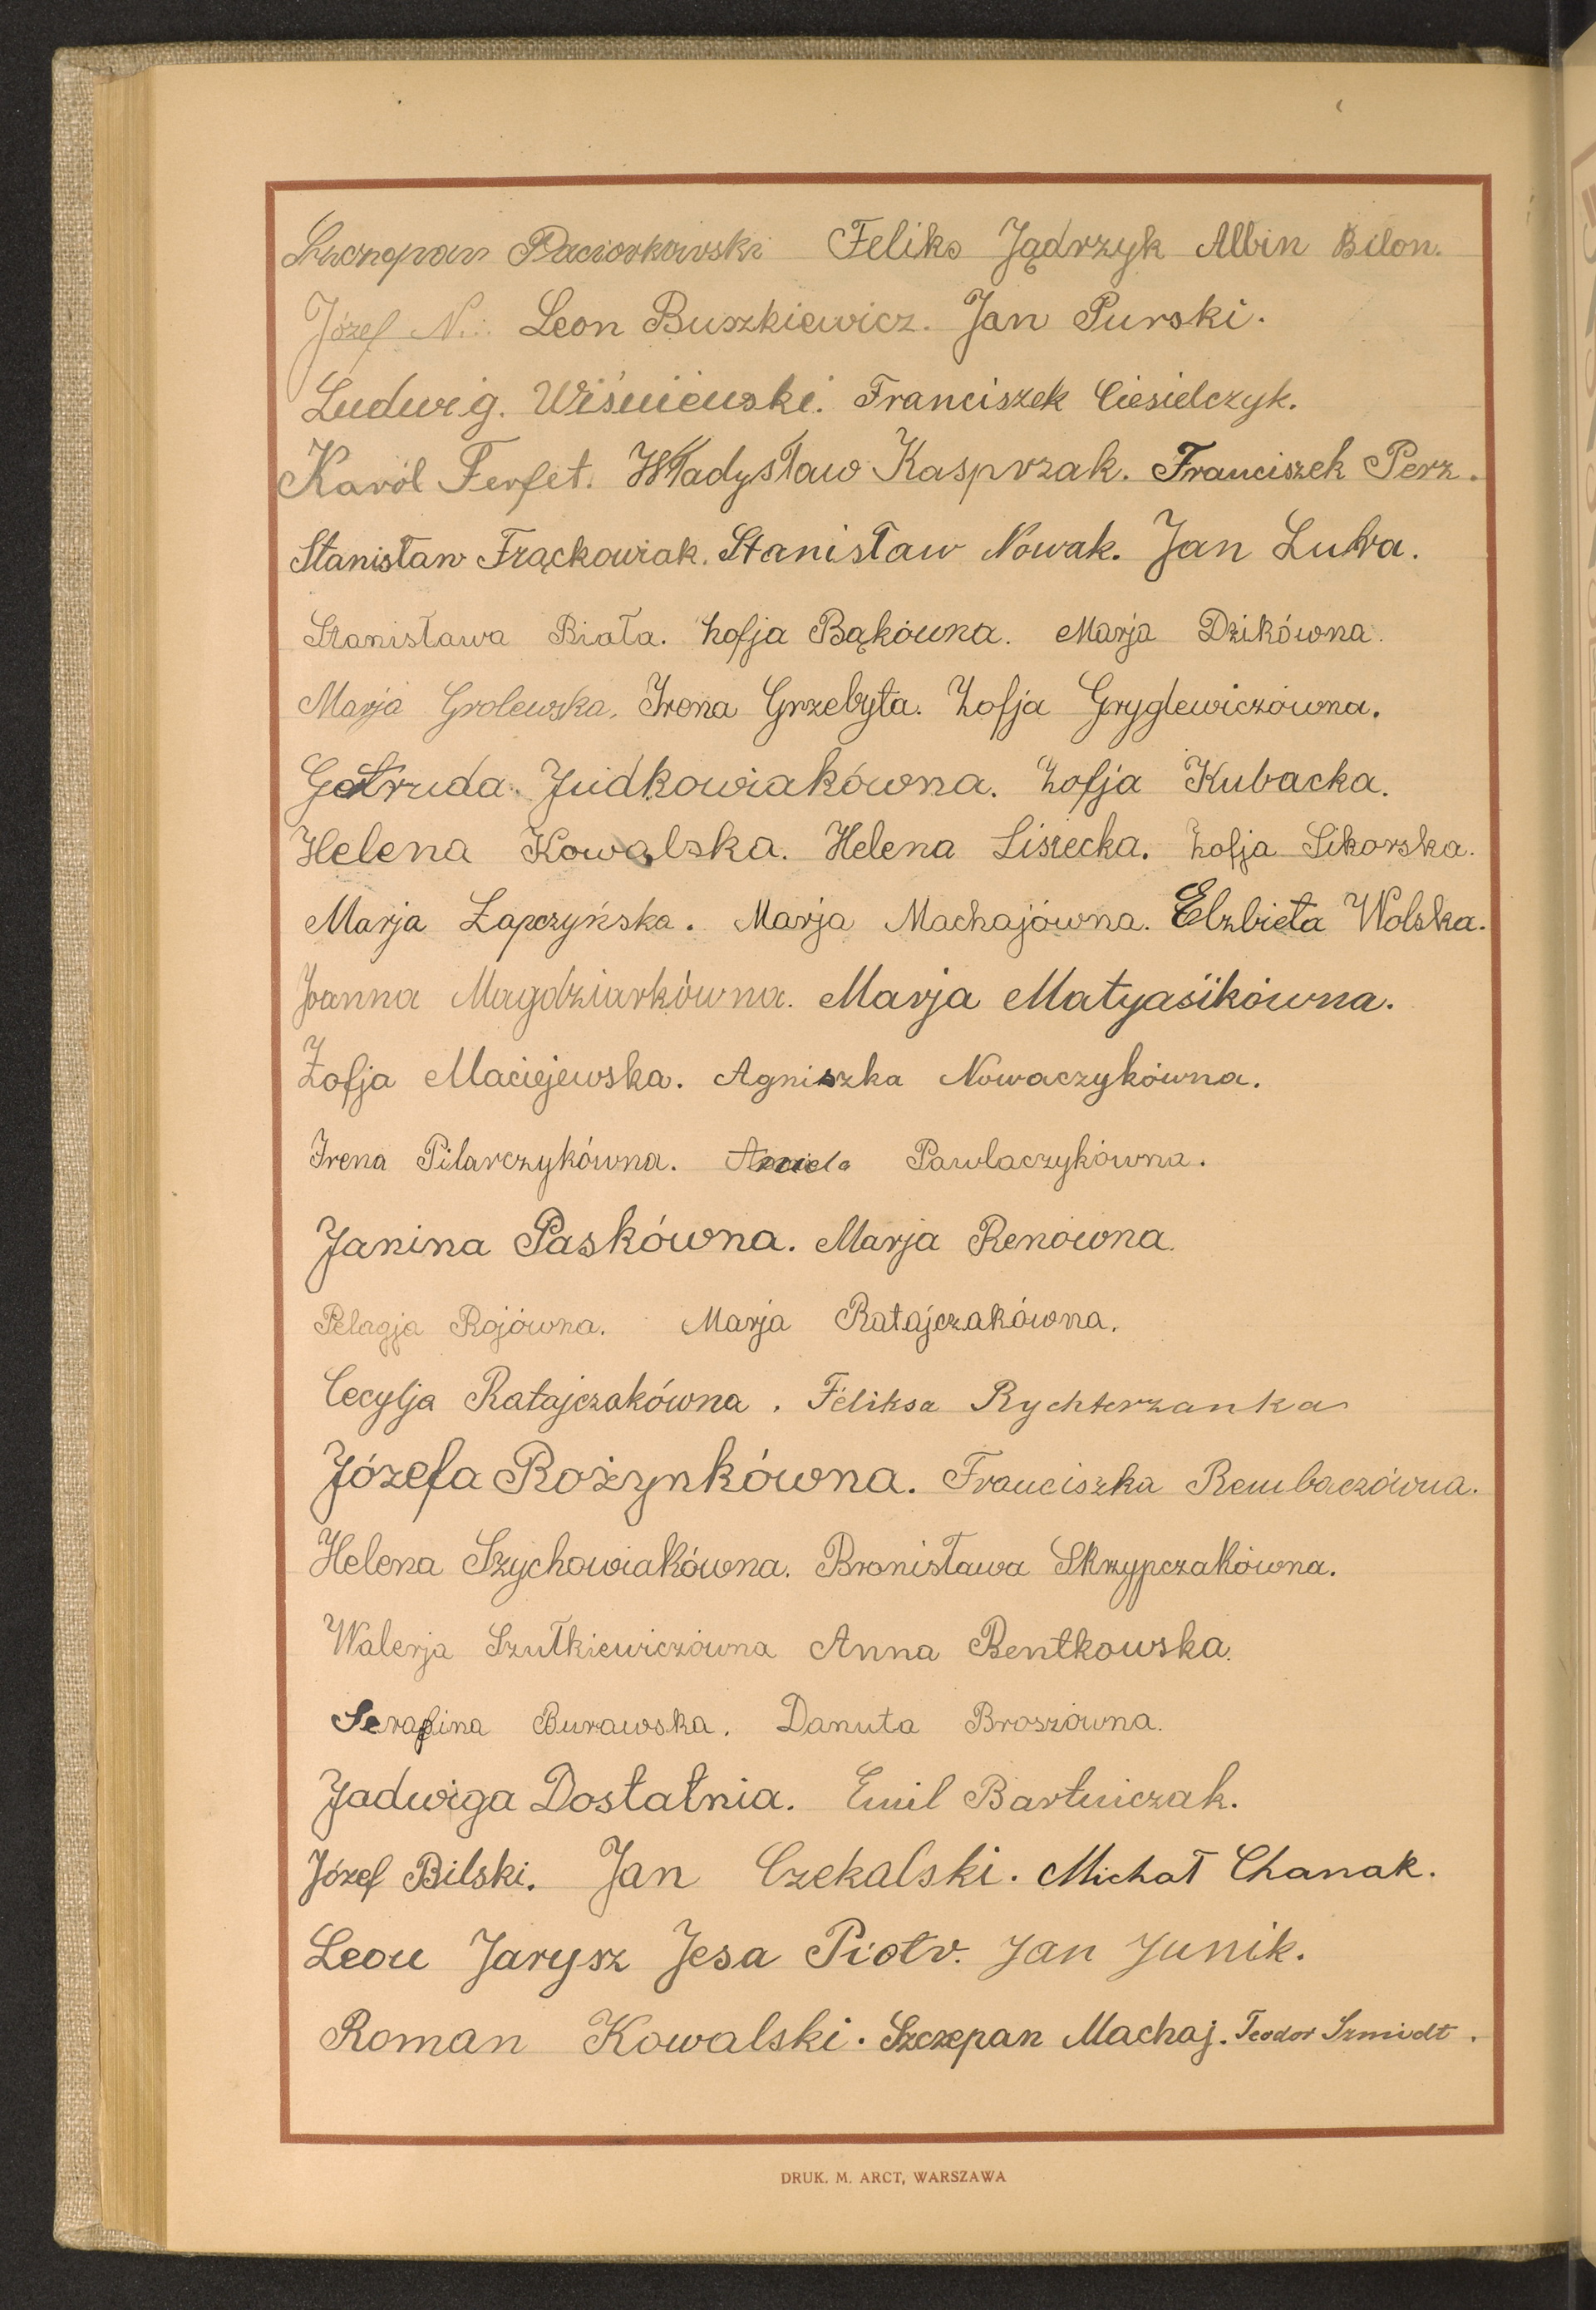 Szczepan Paciorkowski Feliks Jądrzyk Albin Bilon.
Józef N. Leon Buszkiewicz. Jan Purski.
Ludwig. Wiśniewski. Franciszek Ciesielczyk.
Karól Ferfet. Władysław Kasprzak. Franciszek Perz.
Stanisław Frąckowiak. Stanisław Nowak. Jan Luka.
Stanisława Biała. Zofja Bąkówna. Marja Dzikówna.
Marja Grolewska. Irena Grzebyta. Zofja Gryglewiczówna.
Gotruda Judkowiakówna. Zofja Kubacka.
Helena Kowalska. Helena Lisiecka. Zofja Sikorska.
Marja Łapczyńska. Marja Machajówna. Elzbieta Wolska.
Joanna Magdziarkówna. Marja Matyasikówna.
Zofja Maciejewska. Agniszka Nowaczykówna.
Irena Pilarczykówna. Aniela Pawlaczykówna.
Janina Paskówna. Marja Renówna.
Pelagja Rojówna. Marja Ratajczakówna.
Cecylja Ratajczakówna. Feliksa Rychterzanka
Józefa Rożynkówna. Franciszka Rembaczówna.
Helena Szychowiakówna. Bronisława Skrzypczakówna.
Walerja Szułkiewiczówna Anna Bentkowska.
Serafina Burawska. Danuta Broszówna.
Jadwiga Dostatnia. Emil Bartniczak.
Józef Bilski. Jan Czekalski. Michał Chanak.
Leon Jarysz Jesa Piotr. Jan Junik.
Roman Kowalski. Szczepan Machaj. Teodor Szmidt.
DRUK. M. ARCT, WARSZAWA